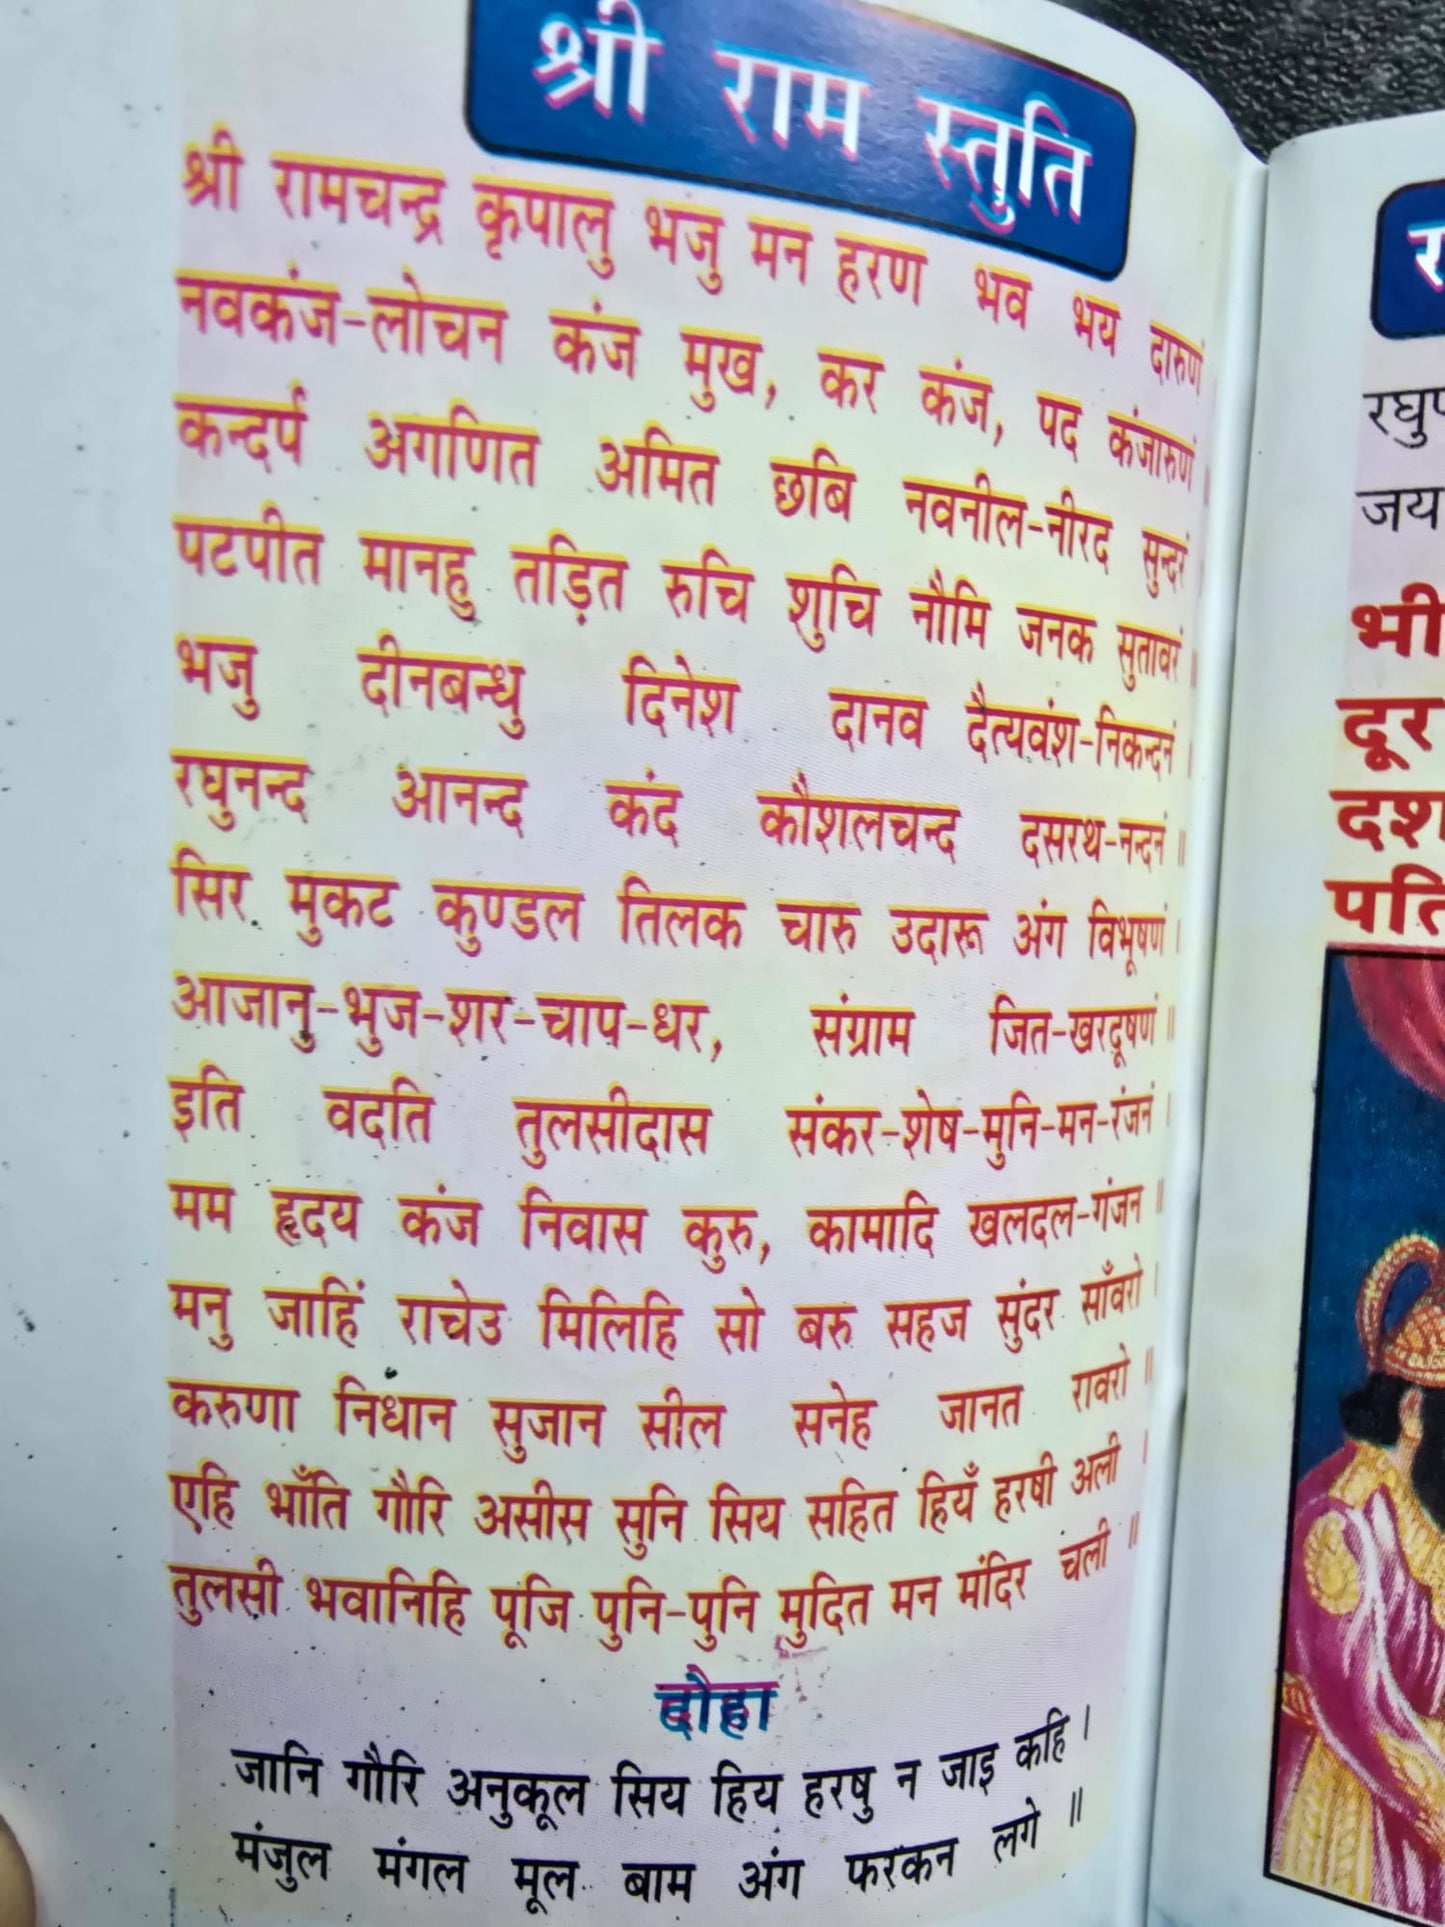 श्री राम स्तुति
श्री रामचन्द्र कृपालु भजु मन हरण भव भय दारुणं
नवकंज-लोचन कंज मुख, कर कंज, पद कंजारुणं ॥
कन्दर्प अगणित अमित छबि नवनील-नीरद सुन्दरं
पटपीत मानहु तड़ित रुचि शुचि नौमि जनक सुतावरं ॥
भजु दीनबन्धु दिनेश दानव दैत्यवंश-निकन्दनं ।
रघुनन्द आनन्द कंद कौशलचन्द दसरथ-नन्दनं ॥
सिर मुकट कुण्डल तिलक चारु उदारू अंग विभूषणं ।
आजानु-भुज-शर-चाप-धर, संग्राम जित-खरदूषणं ॥
इति वदति तुलसीदास संकर-शेष-मुनि-मन-रंजनं ।
मम हृदय कंज निवास कुरु, कामादि खलदल-गंजन ॥
मनु जाहिं राचेउ मिलिहि सो बरु सहज सुंदर साँवरो ।
करुणा निधान सुजान सील सनेह जानत रावरो ॥
एहि भाँति गौरि असीस सुनि सिय सहित हियँ हरषी अली ।
तुलसी भवानिहि पूजि पुनि-पुनि मुदित मन मंदिर चली ॥
दोहा
जानि गौरि अनुकूल सिय हिय हरषु न जाइ कहि ।
मंजुल मंगल मूल बाम अंग फरकन लगे ॥
जय
दूर